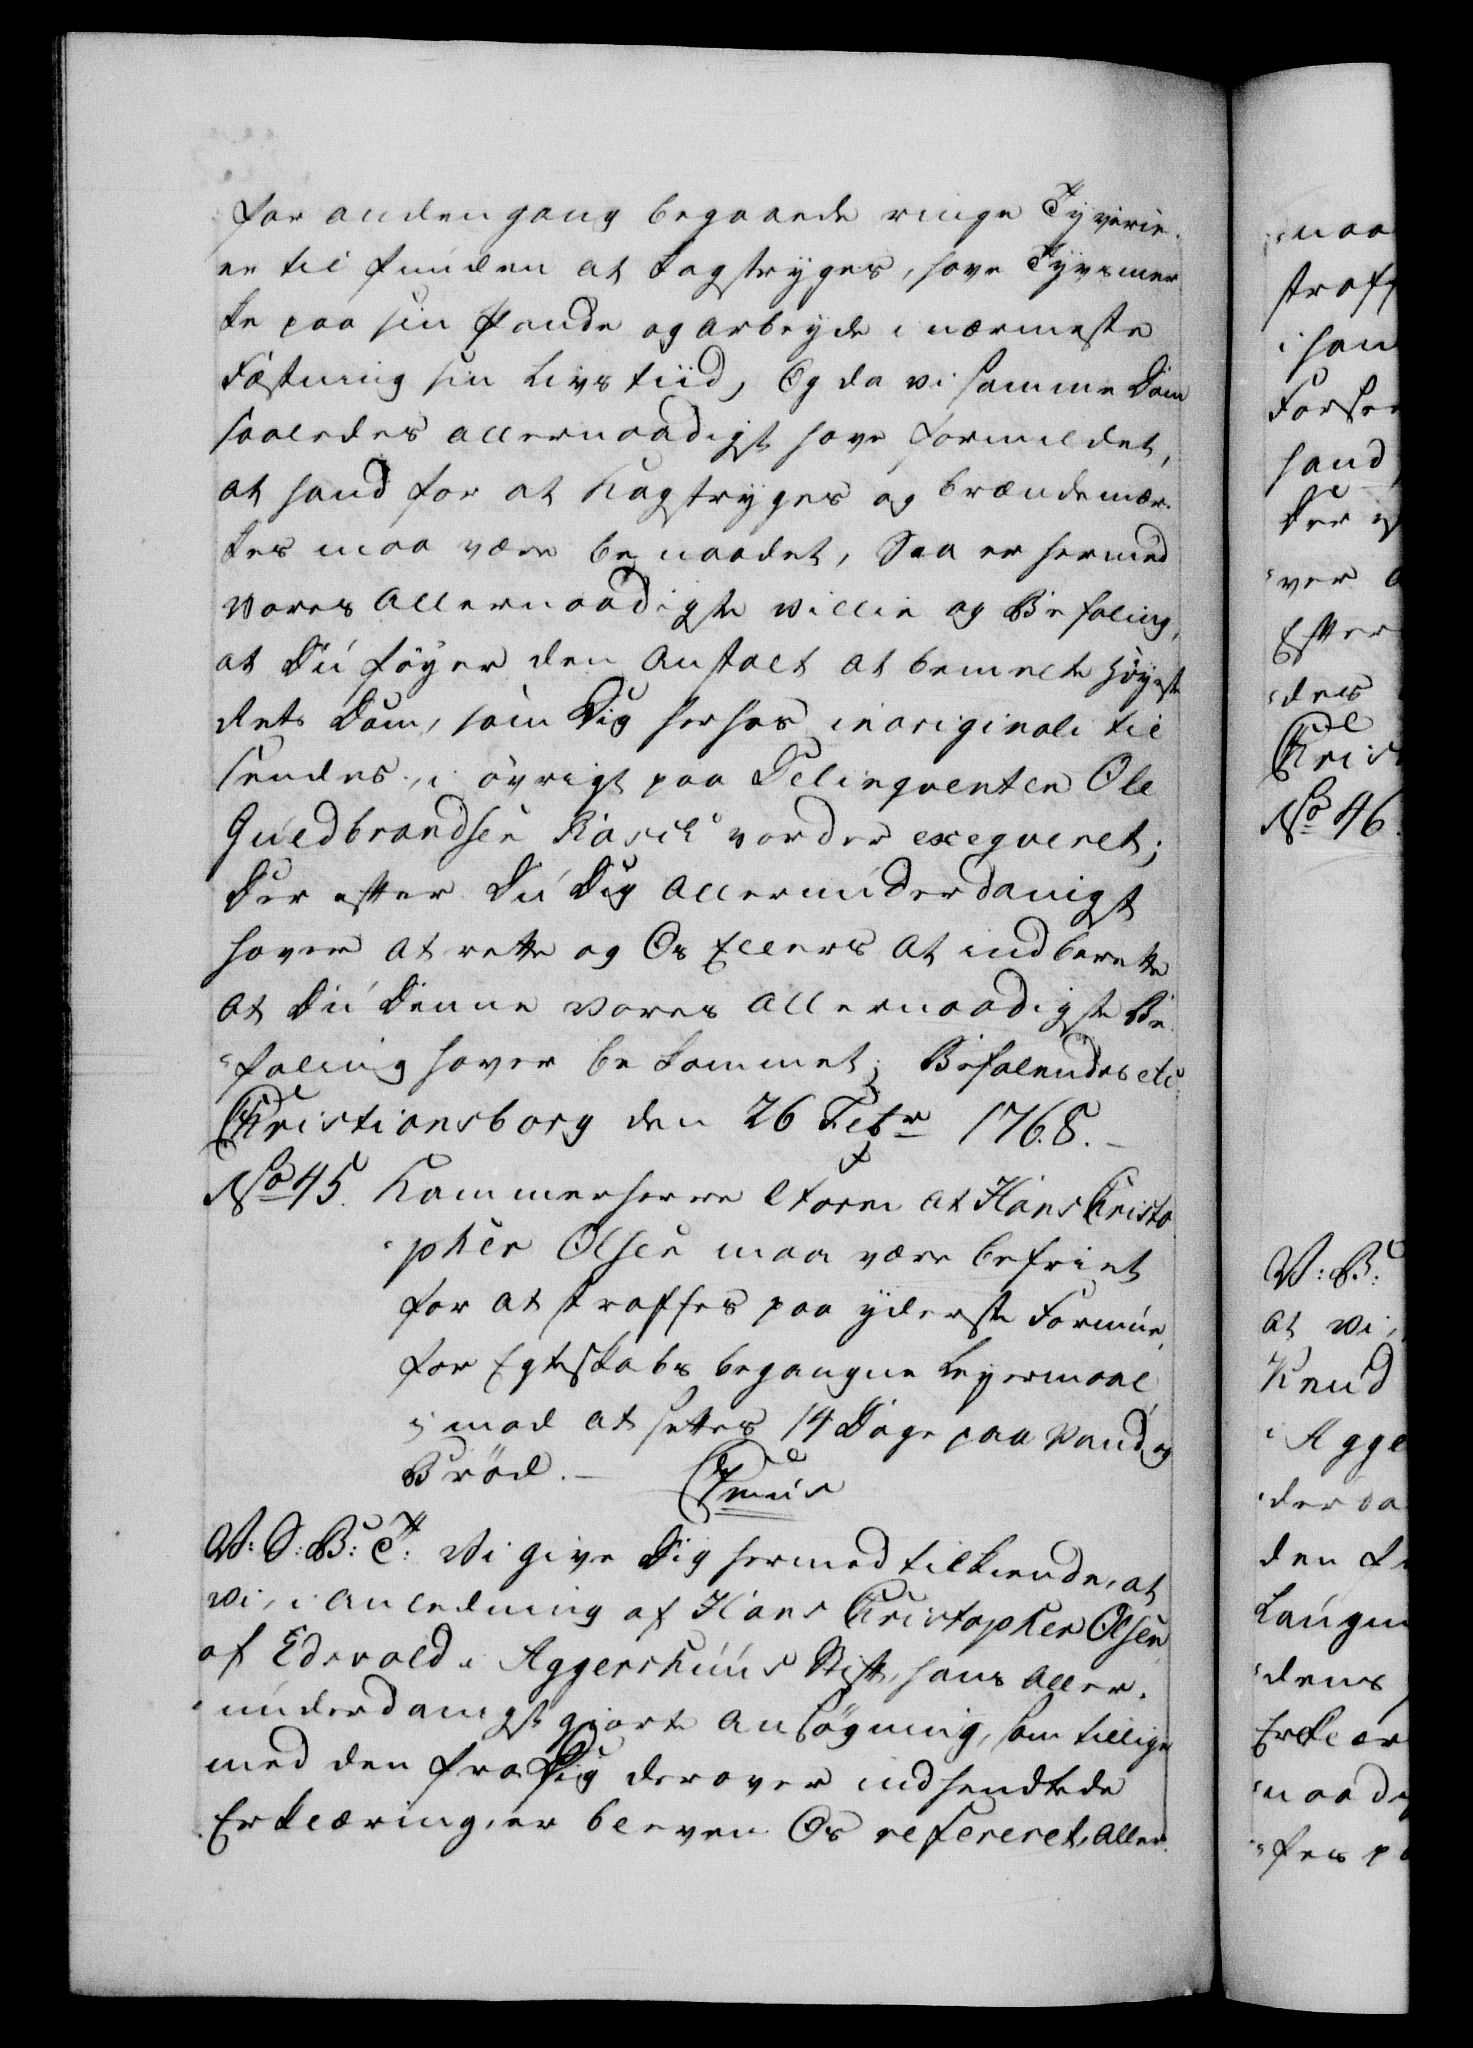 for anden gang begaaede ringe Tyverie
er til funden at kagstryges, have Tyvsmer
ke paa sin Pande og arbeyde i nærmeste
Fæstning sin Livs tiid, Og da vi samme Dom
saaledes allernaadigst have formildet,
at hand for at Kagstryges og brændemær-
kes maa være benaadet, Saa er hermed
vores allernaadigste villie og Befaling,
at Du føyer den Anstalt at bemelte Høyeste
Rets Dom, som Dig herhos in originali til
sendes, i øvrigt paa Delinqventen Ole
Guldbrandsen vorder exeqveret;
Der efter Du Dig allerunderdanigst
haver at rette og Os Ellers at indberette
at Du Denne vores allernaadigste Be-
faling haver bekommet; Befalendes etc
Christiansborg den 26 Febr 1768.
No 45. Kammerherre Storm at Hans Christo
pher Olsen maa være befriet
for at straffes paa yderste Formue
for Egteskabs begangne Leyermaal
imod at settes 14 Dage paa Vand og
Brød.
V: S: B: T: Vi give Dig hermed tilkiende, at
vi, i Anledning af Hans Christopher Olsen
af Edsvold i Aggershuus Stift, hans aller-
underdanigst giorte Ansøgning, som tillige
med den fra Dig derover indsendtede
Erklæring, er bleven Os refereret, Aller
naa
straff
i han
Forsee
hand
Der ef
ver a
Efter
des
Chris
No 46.
V: B:
at vi,
Knud
i Agge
der da
den f
Laugm
dens
Erklær
naadi
fes p